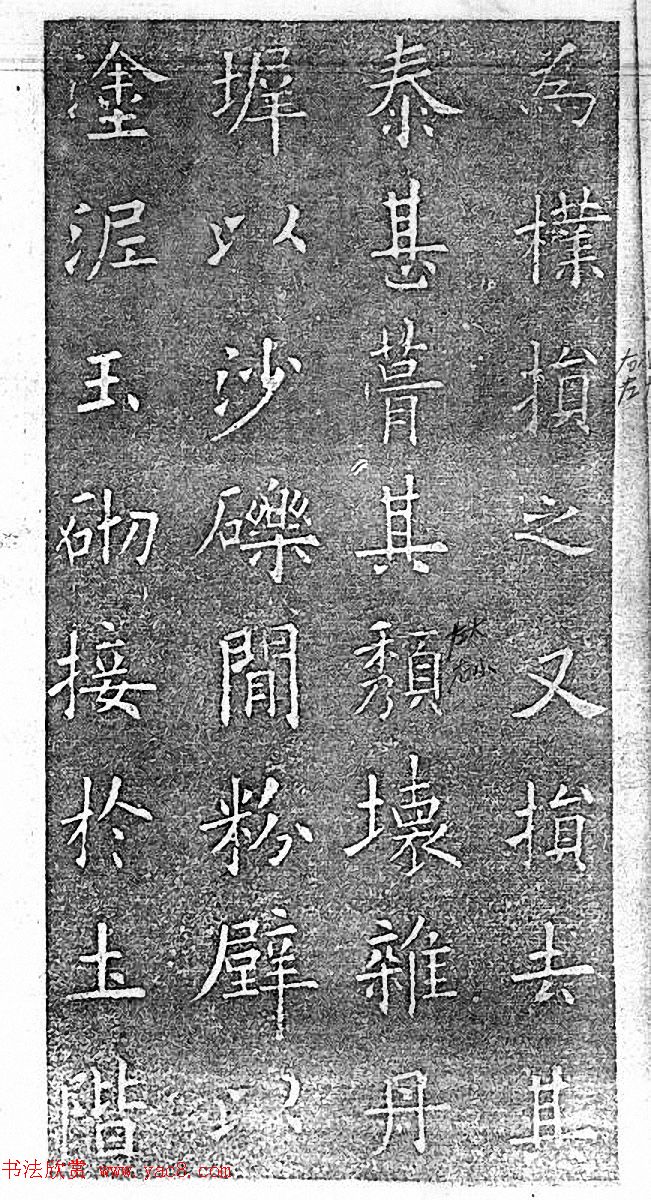 為樸損之又損去其
泰甚葺其頹壞雜丹
墀以沙礫間粉壁以
塗泥玉砌接於土階
书法欣赏 www.yac8.com